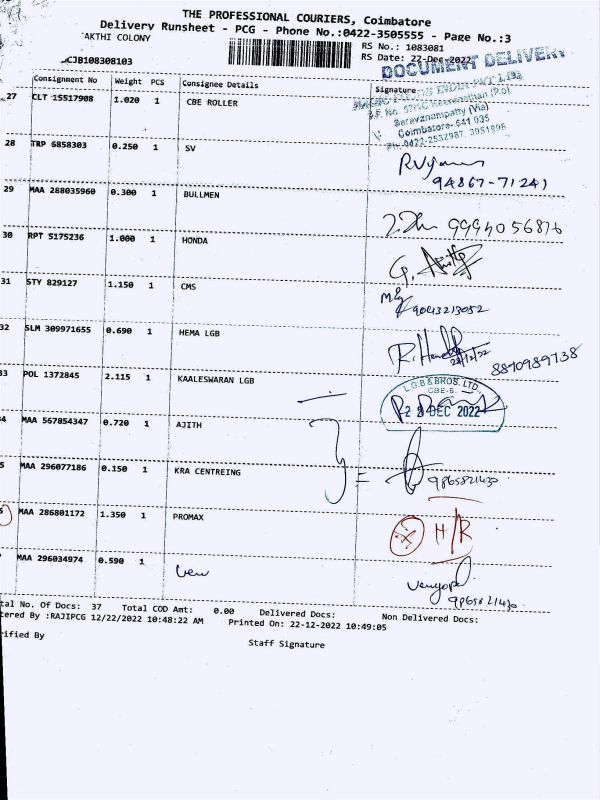 THE PROFESSIONAL COURIERS, Coimbatore
Delivery Runsheet - PCG - Phone No.:0422-3505555 - Page No.:3
AKTHI COLONY
RS No.: 1083081
RS Date: 22-Dec-2022
CJB108308103
DOCUMENT DELIVERY
Consignment No Weight PCS Consignee Details Signature
27 CLT 15517908 1.020 1 CBE ROLLER
Saravanampatty (Via)
Coimbatore- 641 035
28 TRP 6858303 0.250 1 SV
94867-71241
29 MAA 288035960 0.300 1 BULLMEN
30 RPT 5175236 1.000 1 HONDA
31 STY 829127 1.150 1 CMS
9043213052
32 SLM 309971655 0.690 1 HEMA LGB
8870989738
33 POL 1372845 2.115 1 KAALESWARAN LGB
L.G.B & BROS. LTD.
CBE-6.
DEC 2022
4 MAA 567854347 0.720 1 AJITH
5 MAA 296077186 0.150 1 KRA CENTREING
= 9865821430
MAA 286801172 1.350 1 PROMAX
H/R
MAA 296034974 0.590 1
Venugopal
tal No. Of Docs: 37 Total COD Amt: 0.00 Delivered Docs: Non Delivered Docs:
tered By :RAJIPCG 12/22/2022 10:48:22 AM Printed On: 22-12-2022 10:49:05
rified By Staff Signature